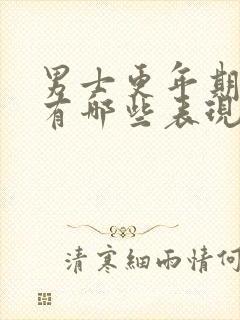 男士更年期
有哪些表现
清寒細雨情何